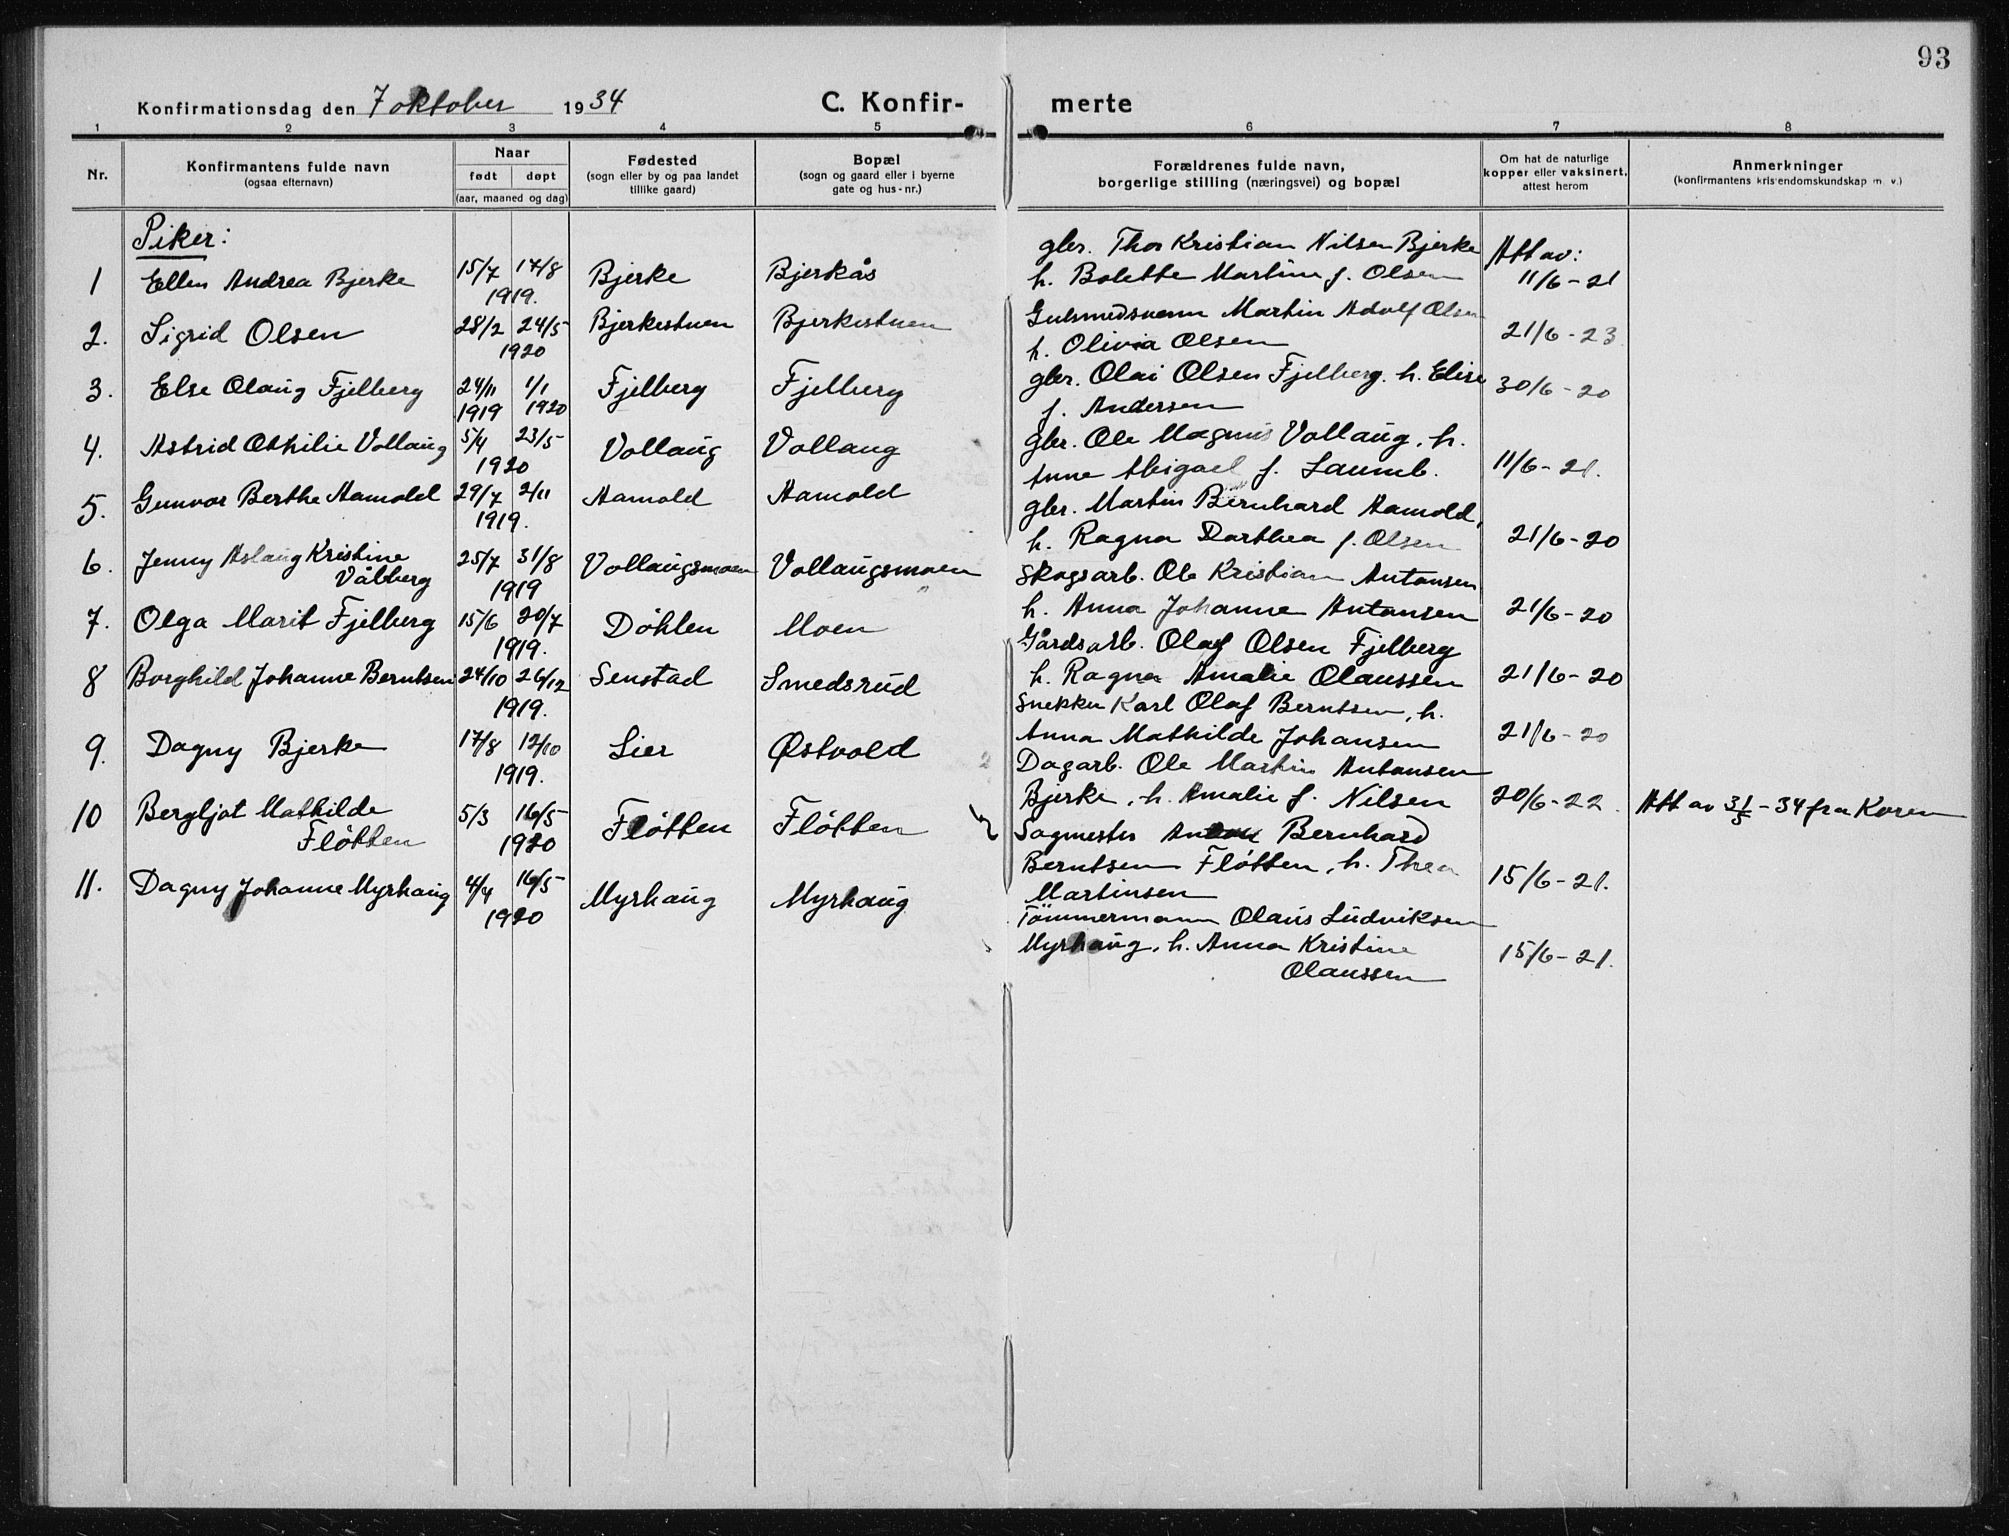 93
Konfirmationsdag den 7 oktober 1934
C. Konfir- merte
1 2 3 4 5 6 7 8
Nr.
Konfirmantens fulde navn
(ogsaa efternavn)
Naar
født døpt
(aar, maaned og dag)
Fødested
(sogn eller by og paa landet
tillike gaard)
Bopæl
(sogn og gaard eller i byerne
gate og hus-nr.)
Forældrenes fulde navn,
borgerlige stilling (næringsvei) og bopæl
Om hat de naturlige
kopper eller vaksinert,
attest herom
Anmerkninger
(konfirmantens kristendomskundskap m. v.)
Piker:
1 Ellen Andrea Bjerke 15/7 17/8 Bjerke Bjerkås
1919.
gbr. Thor Kristian Nilsen Bjerke
h. Bolette Martine f. Olsen
Att av:
11/6-21
2. Sigrid Olsen 28/2 24/5 Bjerkestuen Bjerkestuen
1920
Gulsmedsvenn Martin Adolf Olsen
h. Olivia Olsen
21/6-23
3. Else Olaug Fjelberg 24/11 1/1 Fjelberg Fjelberg
1919 1920
gbr. Olai Olsen Fjelberg. h. Elise
f. Andersen
30/6-20
4. Astrid Othilie Vollaug 5/4 23/5 Vollaug Vollaug
1920
gbr. Ole Magnus Vollaug, h.
Anne Abigael f. Laumb.
11/6-21.
5. Gunvor Berthe Aamold 29/7 2/11 Aamold Aamold
1919.
gbr. Martin Bernhard Aamold,
h. Ragna Dorthea f. Olsen
21/6-20
6. Jenny Aslaug Kristine
Vålberg
25/7 31/8 Vollaugsmoen Vollaugsmoen
1919
Skogsarb. Ole Kristian Antonsen
h. Anna Johanne Antonsen
21/6-20
7. Olga Marit Fjelberg 15/6 20/7 Döhlen Moen
1919.
Gårdsarb. Olaf Olsen Fjelberg
h. Ragna Amalie Olaussen
21/6-20
8 Borghild Johanne Berntsen 24/10 26/12 Senstad Smedsrud
1919.
Snekker Karl Olaf Berntsen, h.
Anna Mathilde Johansen
21/6-20
9. Dagny Bjerke 17/8 12/10 Lier Østvold
1919.
Dagarb. Ole Martin Antonsen
Bjerke, h. Amalie f. Nilsen
20/6-22.
Att av 31/5-34 fra Koren
10 Bergljot Mathilde
Fløtten
5/3 16/5 Fløtten Fløtten
1920
Sagmester Anton Bernhard
Berntsen Fløtten, h. Thea
Martinsen
15/6-21.
11. Dagny Johanne Myrhaug 4/4 16/5 Myrhaug Myrhaug
1920
Tömmermann Olaus Ludviksen
Myrhaug, h. Anna Kristine
Olaussen
15/6-21.